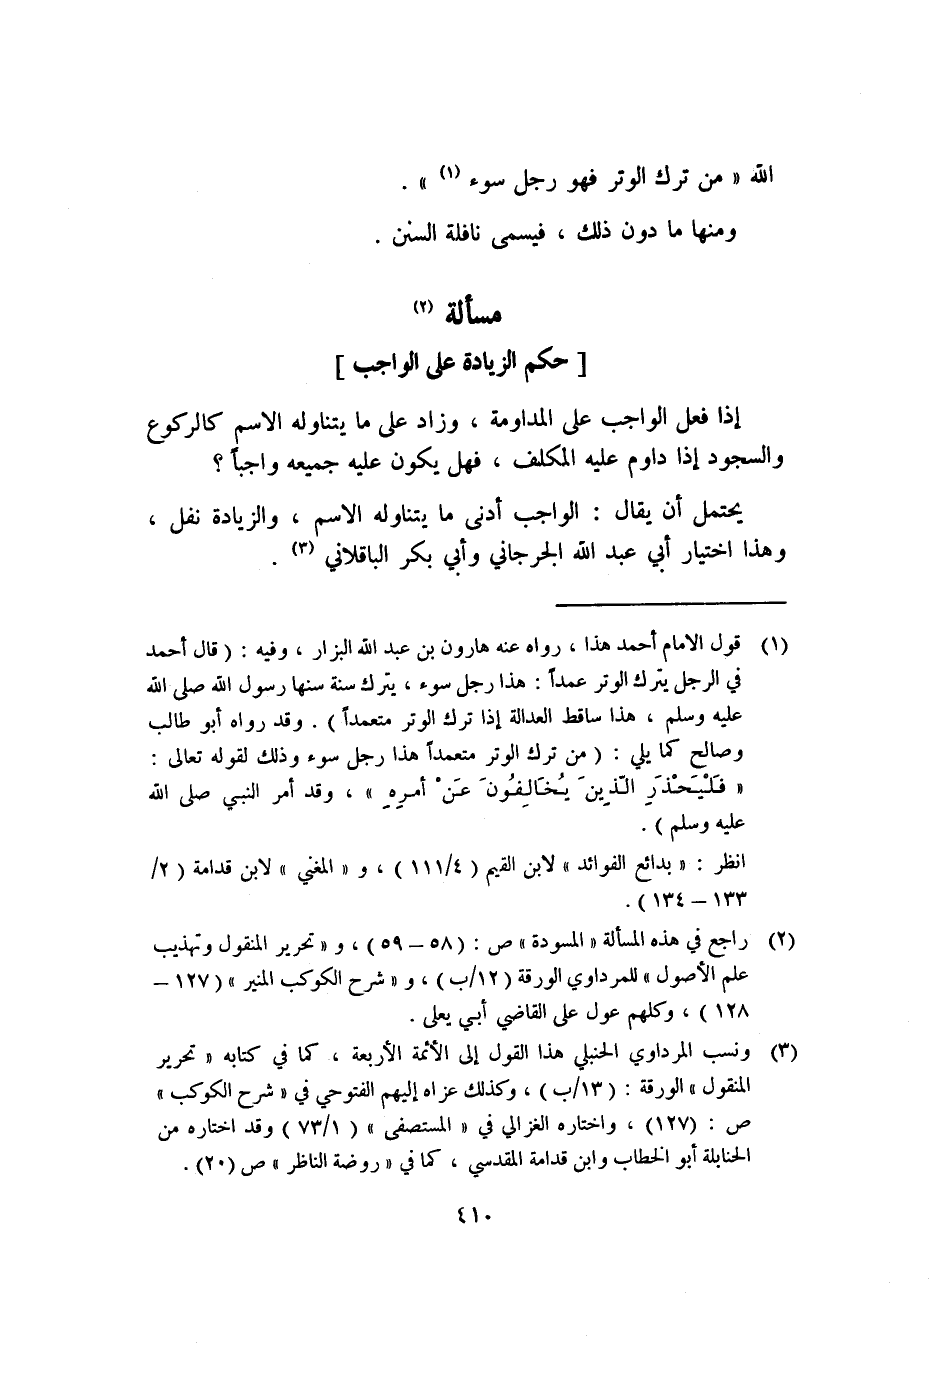 الله « من ترك الوتر فهو رجل سوء (١) » .
ومنها ما دون ذلك ، فيسمى نافلة السنن .
مسألة (٢)
[ حكم الزيادة على الواجب ]
إذا فعل الواجب على المداومة ، وزاد على ما يتناوله الاسم كالركوع
والسجود إذا داوم عليه المكلف ، فهل يكون عليه جميعه واجباً ؟
يحتمل أن يقال : الواجب أدنى ما يتناوله الاسم ، والزيادة نفل ،
وهذا اختيار أبي عبد الله الجرجاني وأبي بكر الباقلاني (٣) .
(١) قول الامام أحمد هذا ، رواه عنه هارون بن عبد الله البزار ، وفيه : ( قال أحمد
في الرجل يترك الوتر عمداً : هذا رجل سوء ، يترك سنة سنها رسول الله صلى الله
عليه وسلم ، هذا ساقط العدالة إذا ترك الوتر متعمداً ) . وقد رواه أبو طالب
وصالح كما يلي : ( من ترك الوتر متعمداً هذا رجل سوء وذلك لقوله تعالى :
« فَلْيَحْذَرِ الَّذِينَ يُخَالِفُونَ عَنْ أَمرِهِ » ، وقد أمر النبي صلى الله
عليه وسلم ) .
انظر : « بدائع الفوائد » لابن القيم ( ١١١/٤ ) ، و « المغني » لابن قدامة ( ٢/
١٣٣ – ١٣٤ ) .
(٢) راجع في هذه المسألة « المسودة » ص : ( ٥٨ – ٥٩ ) ، و « تحرير المنقول وتهذيب
علم الأصول » للمرداوي الورقة ( ١٢/ب ) ، و « شرح الكوكب المنير » ( ١٢٧ –
١٢٨ ) ، وكلهم عول على القاضي أبي يعلى .
(٣) ونسب المرداوي الحنبلي هذا القول إلى الأئمة الأربعة ، كما في كتابه « تحرير
المنقول » الورقة : ( ١٣/ب ) ، وكذلك عزاه إليهم الفتوحي في « شرح الكوكب »
ص : (١٢٧) ، واختاره الغزالي في « المستصفى » ( ٧٣/١ ) وقد اختاره من
الحنابلة أبو الخطاب وابن قدامة المقدسي ، كما في « روضة الناظر » ص (٢٠) .
٤١٠